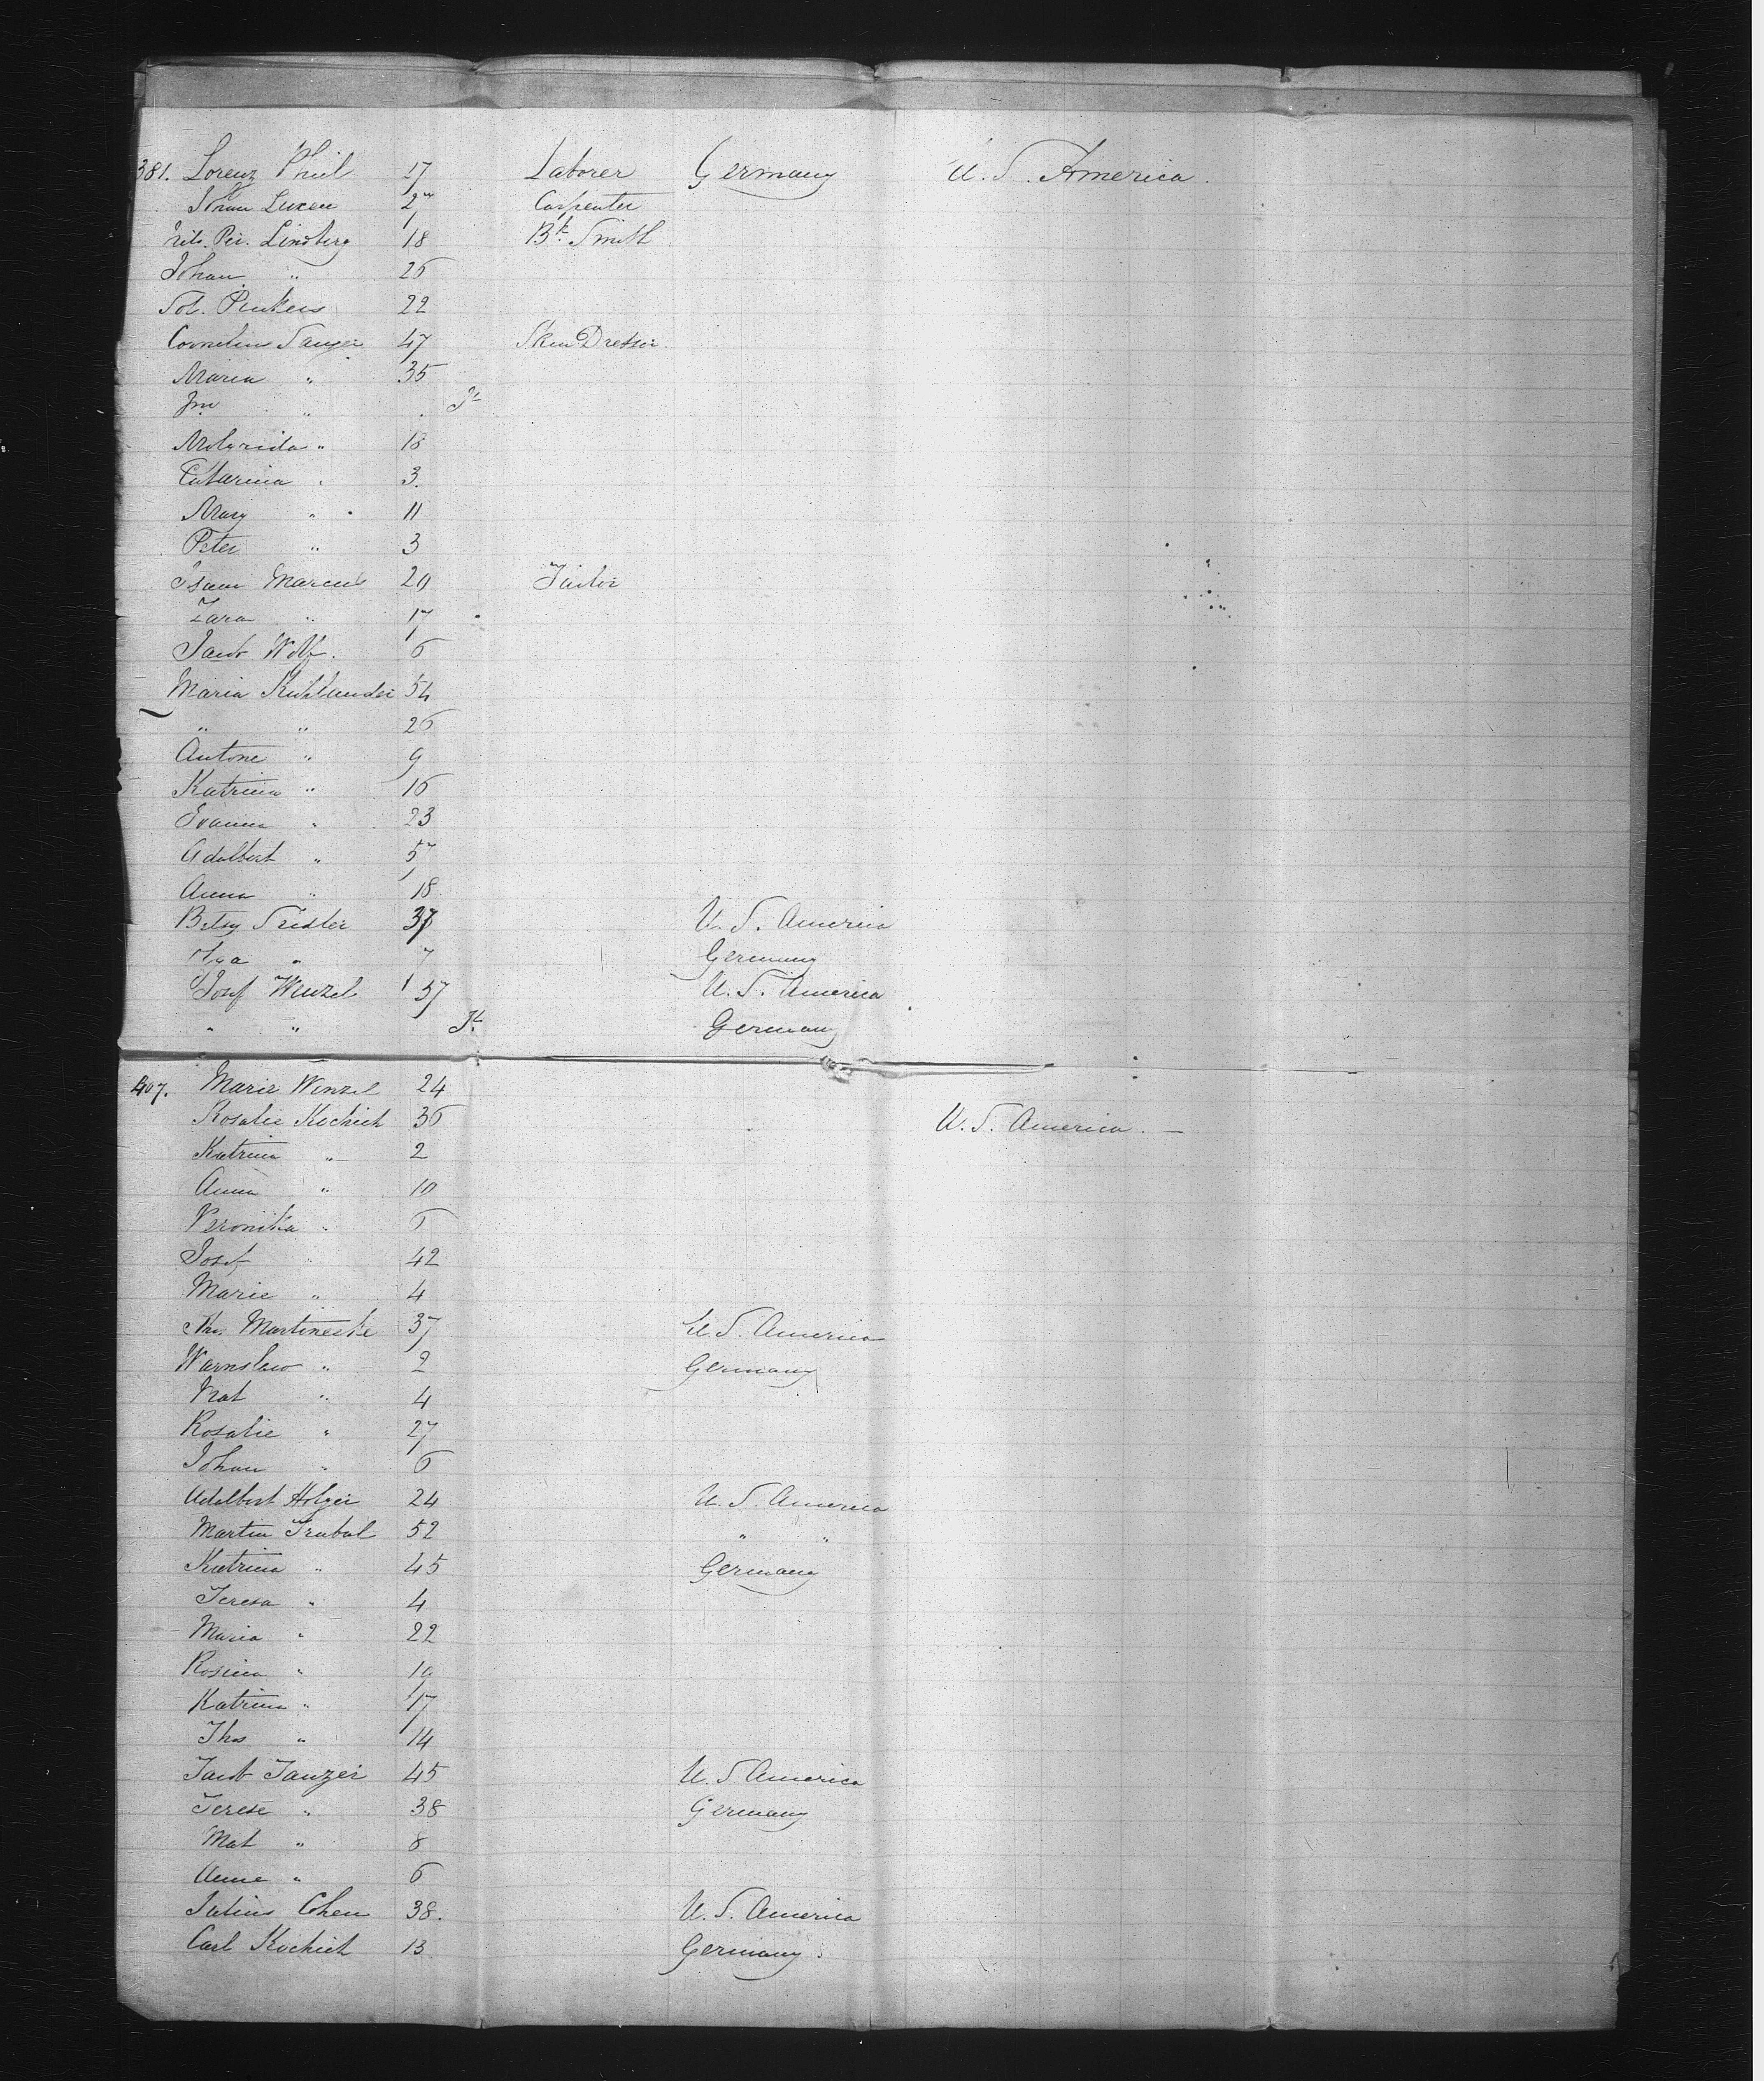 381. Lorenz Phiel 27 Laborer Germany U. S. America.
Johan Luxen 27 Carpenter
Nils. Per. Lindberg 18 Bk Smith
Johan " 26
Sol. Pinkers 22
Cornelius Sanger 47 Skin Dresser.
Maria " 35
Jno " It
18
Catarina " 3.
Mary " 11
Peter " 3
Isaac Marcus 20 Tailor
Zara " 17
Jacob Wolf. 6
Maria Kuhlander 54
" " 26
Antone " 9
Katrina " 16
23
Adalbert " 57
Anna " 18
Betsy Tridler 37 U. S. America
Olga " 7 Germany
Josef Wenzel 57 U. S. America
" " It. Germany
407. Marie Wenzel 24
Rosalie Kochich 36 U. S. America. —
Katrina " 2
Anna " 10
Veronika " 6
Josef " 42
Marie " 4
Martineske 37 U. S. America
Warnslaw " 2 Germany
Mat " 4
Rosalie " 27
Johan " 6
Adalbert Holzer 24 U. S. America
Martin Trubal 52 " "
Katrina " 45 Germany
Teresa " 4
Maria " 22
Rosina " 19
Katrina " 17
Thos " 14
Jacob Tanzer 45 U. S America
Terese " 38 Germany
Mat " 8
Anne " 6
Julius Cohen 38. U. S. America
Carl Kochich 13 Germany.